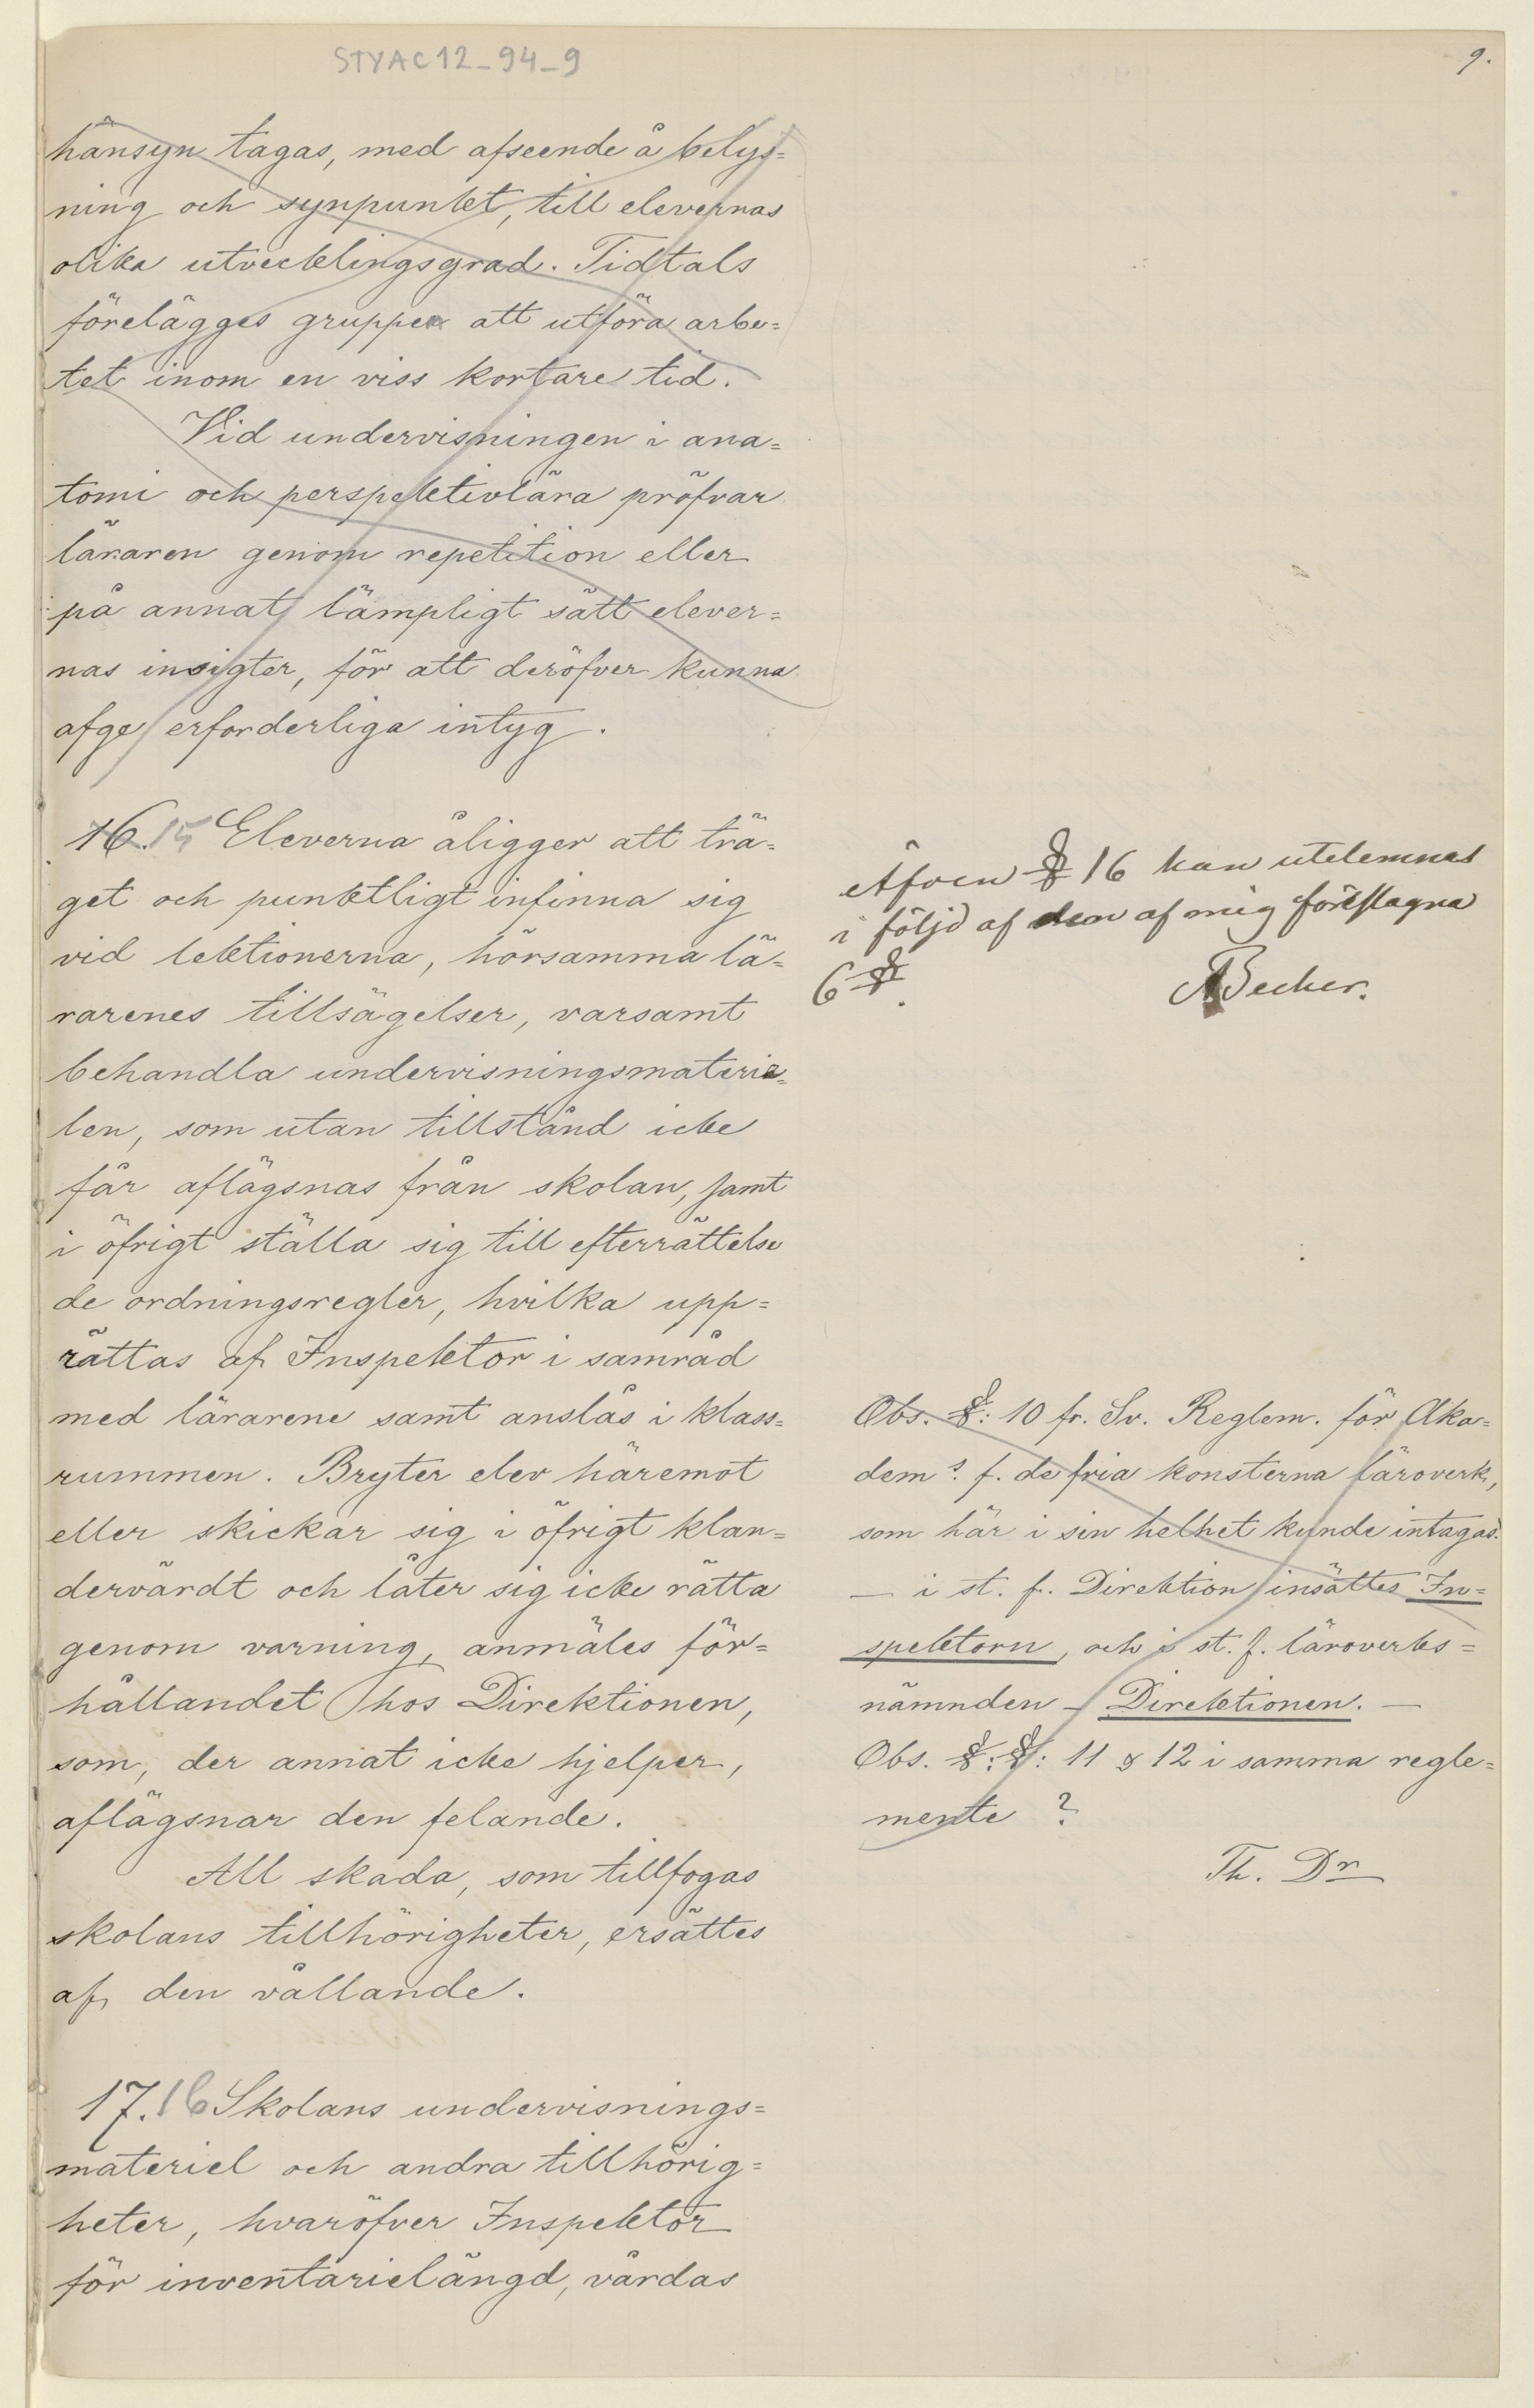 STYAC12_94_9
9.
hänsyn tagas, med afseende å belys=
ning och synpunkt, till elevernas
olika utvecklingsgrad. Tidtals
förelägges gruppen att utföra arbe=
tet inom en viss kortare tid.
Vid undervisningen i ana=
tomi och perspektivlära pröfvar
läraren genom repetition eller
på annat lämpligt sätt elever=
nas insigter, för att deröfver kunna
afge erforderliga intyg.
16. 15 Eleverna åligger att trä=
get och punktligt infinna sig
vid lektionerna, hörsamma lä=
rarenes tillsägelser, varsamt
behandla undervisningsmaterie=
len, som utan tillstånd icke
får aflägsnas från skolan, samt
i öfrigt ställa sig till efterrättelse
de ordningsregler, hvilka upp=
rättas af Inspektor i samråd
med lärarene samt anslås i klass=
rummen. Bryter elev häremot
eller skickar sig i öfrigt klan=
dervärdt och låter sig icke rätta
genom varning, anmäles för=
hållandet hos Direktionen,
som, der annat icke hjelper,
aflägsnar den felande.
All skada, som tillfogas
skolans tillhörigheter, ersättes
af den vållande.
17. 16 Skolans undervisnings=
materiel och andra tillhörig=
heter, hvaröfver Inspektor
för inventarielängd, vårdas
Äfven § 16 kan utelemnas
i följd af den af mig föreslagna
6 §.
ABecker.
Obs. §: 10 fr. Sv. Reglem. för Aka=
dems. f. de fria konsterna läroverk,
som här i sin helhet kunde intagas.
— i st. f. Direktion insättes In=
spektorn, och i st. f. läroverks=
nämnden – Direktionen. —
Obs. §:§: 11 & 12 i samma regle=
mente ?
Th. Dn